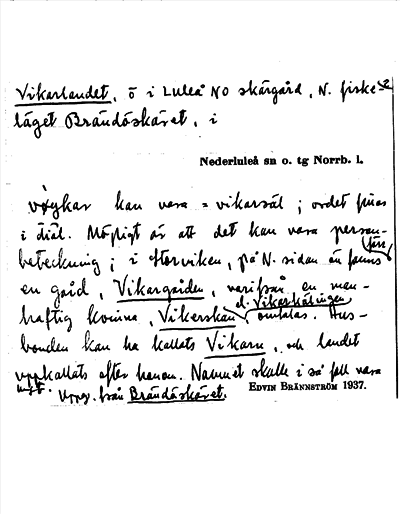 Vikarlandet, ö i Luleå NO skärgård, N. fiske-
läget Brändöskäret, i
Nederluleå sn o. tg Norrb. l.
kan vara = vikarsäl; ordet finns
i dial. Möjligt är att det kan vara person-
beteckning; i Storviken, på N. sidan ön fanns förr
en gård, Vikargården, varifrån en man-
haftig kvinna, Vikerskan d. Vikarkäringen, omtalas. Hus-
bonden kan ha kallats Vikarn, och landet
uppkallats efter honom. Namnet skulle i så fall vara
nytt. Uppg. från Brändöskäret.
EDVIN BRÄNNSTRÖM 1937.